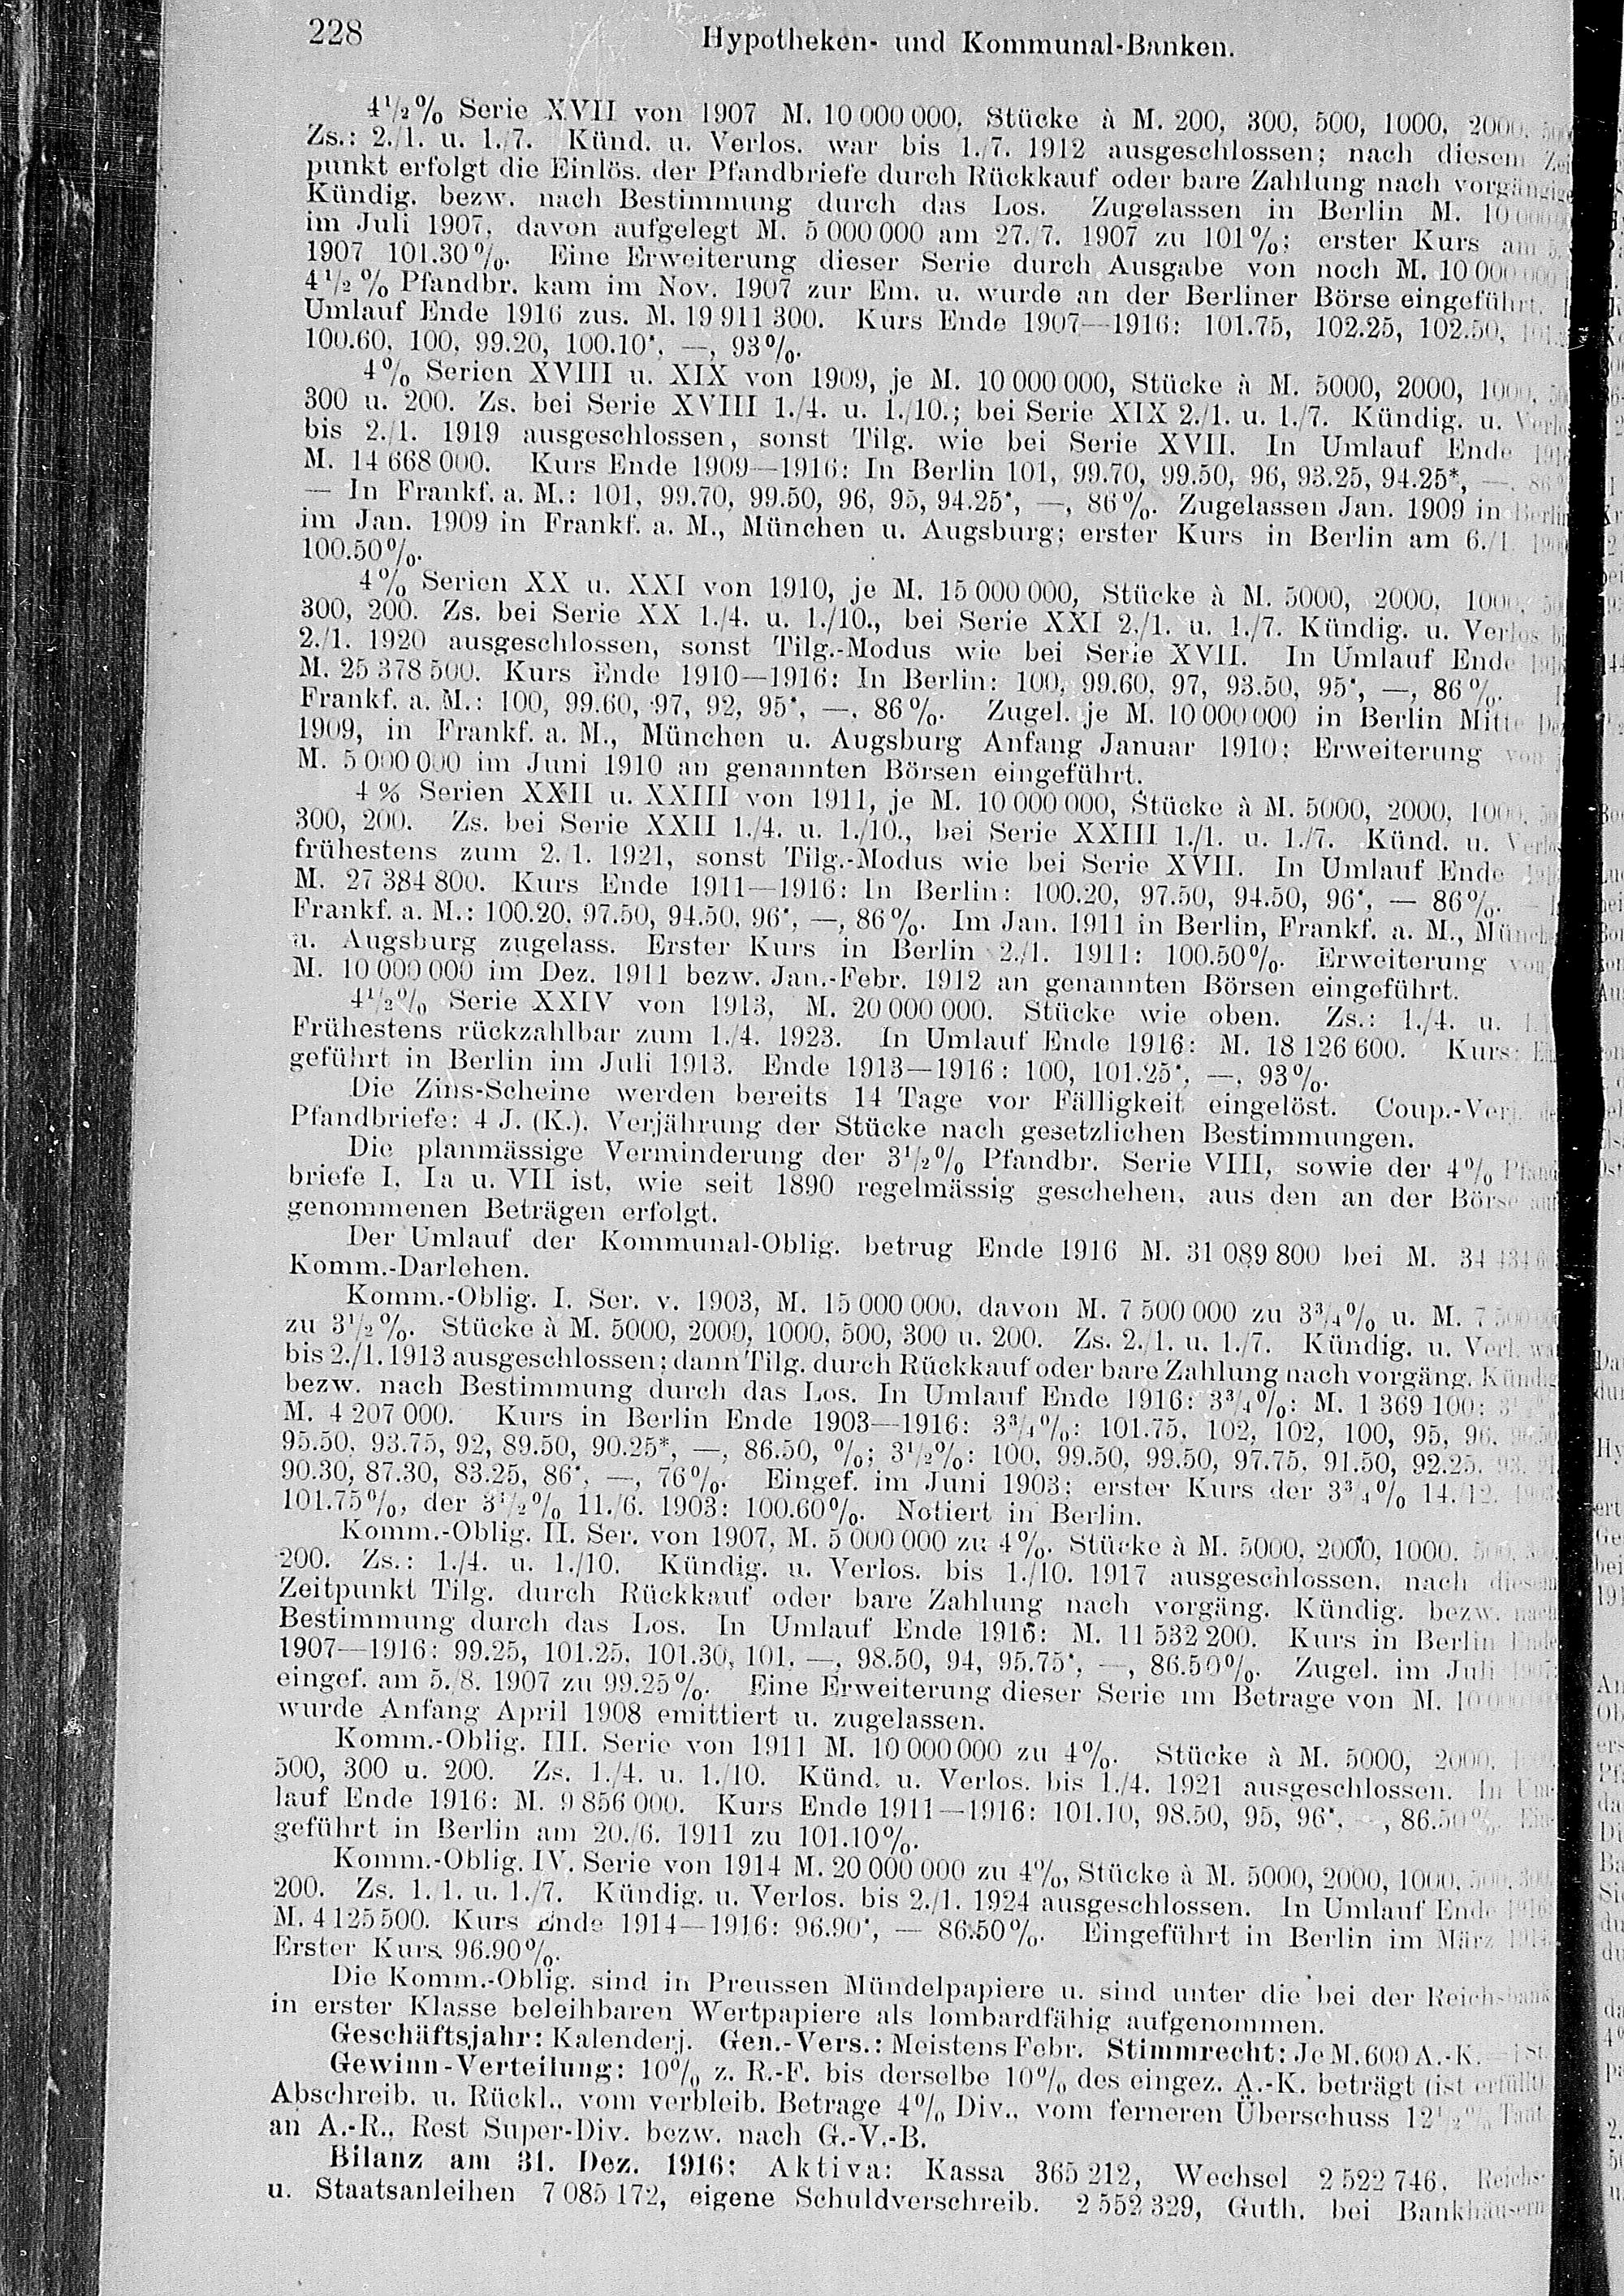 228
Hypotheken- und Kommunal-Banken.
4½% Serie XVII von 1907 M. 10 000 000. Stücke à M. 200, 300, 500, 1000, 2000,
Zs.: 2./1. u. 1./7. Künd. u. Verlos. war bis 1./7. 1912 ausgeschlossen; nach diesem
punkt erfolgt die Einlös. der Pfandbriefe durch Rückkauf oder bare Zahlung nach vorgängige
Kündig. bezw. nach Bestimmung durch das Los. Zugelassen in Berlin M.
im Juli 1907, davon aufgelegt M. 5 000 000 am 27./7. 1907 zu 101%; erster Kurs am
1907 101.30%. Eine Erweiterung dieser Serie durch Ausgabe von noch M. 10 000 000
4½% Pfandbr. kam im Nov. 1907 zur Em. u. wurde an der Berliner Börse eingeführt.
Umlauf Ende 1916 zus. M. 19 911 300. Kurs Ende 1907—1916: 101.75, 102.25, 102.50,
100.60, 100, 99.20, 100.10*, —, 93%.
4% Serien XVIII u. XIX von 1909, je M. 10 000 000, Stücke à M. 5000, 2000, 1000,
300 u. 200. Zs. bei Serie XVIII 1./4. u. 1./10.; bei Serie XIX 2./1. u. 1./7. Kündig. u.
bis 2./1. 1919 ausgeschlossen, sonst Tilg. wie bei Serie XVII. In Umlauf Ende
M. 14 668 000. Kurs Ende 1909—1916: In Berlin 101, 99.70, 99.50, 96, 93.25, 94.25*, —,
— In Frankf. a. M.: 101, 99.70, 99.50, 96, 95, 94.25*, —, 86%. Zugelassen Jan. 1909 in Berlin
im Jan. 1909 in Frankf. a. M., München u. Augsburg; erster Kurs in Berlin am 6./1.
100.50%.
4% Serien XX u. XXI von 1910, je M. 15 000 000, Stücke à M. 5000, 2000, 1000,
300, 200. Zs. bei Serie XX 1./4. u. 1./10., bei Serie XXI 2./1. u. 1./7. Kündig. u. Verlos.
2./1. 1920 ausgeschlossen, sonst Tilg.-Modus wie bei Serie XVII. In Umlauf Ende 1916
M. 25 378 500. Kurs Ende 1910—1916: In Berlin: 100, 99.60, 97, 93.50, 95*, —, 86%.
Frankf. a. M.: 100, 99.60, 97, 92, 95*, —, 86%. Zugel. je M. 10 000 000 in Berlin Mitte
1909, in Frankf. a. M., München u. Augsburg Anfang Januar 1910; Erweiterung von
M. 5 000 000 im Juni 1910 an genannten Börsen eingeführt.
4% Serien XXII u. XXIII von 1911, je M. 10 000 000, Stücke à M. 5000, 2000, 1000,
300, 200. Zs. bei Serie XXII 1./4. u. 1./10., bei Serie XXIII 1./1. u. 1./7. Künd. u.
frühestens zum 2./1. 1921, sonst Tilg.-Modus wie bei Serie XVII. In Umlauf Ende
M. 27 384 800. Kurs Ende 1911—1916: In Berlin: 100.20, 97.50, 94.50, 96*, — 86%.
Frankf. a. M.: 100.20, 97.50, 94.50, 96*, —, 86%. Im Jan. 1911 in Berlin, Frankf. a. M.,
u. Augsburg zugelass. Erster Kurs in Berlin 2./1. 1911: 100.50%. Erweiterung von
M. 10 000 000 im Dez. 1911 bezw. Jan.-Febr. 1912 an genannten Börsen eingeführt.
4½% Serie XXIV von 1913, M. 20 000 000. Stücke wie oben. Zs.: 1./4. u.
Frühestens rückzahlbar zum 1./4. 1923. In Umlauf Ende 1916: M. 18 126 600. Kurs:
geführt in Berlin im Juli 1913. Ende 1913—1916: 100, 101.25*, —, 93%.
Die Zins-Scheine werden bereits 14 Tage vor Fälligkeit eingelöst. Coup.-Verj.
Pfandbriefe: 4 J. (K.), Verjährung der Stücke nach gesetzlichen Bestimmungen.
Die planmässige Verminderung der 3½% Pfandbr. Serie VIII, sowie der 4% Pfand
briefe I, Ia u. VII ist, wie seit 1890 regelmässig geschehen, aus den an der Börse
genommenen Beträgen erfolgt.
Der Umlauf der Kommunal-Oblig. betrug Ende 1916 M. 31 089 800 bei M.
Komm.-Darlehen.
Komm.-Oblig. I. Ser. v. 1903, M. 15 000 000, davon M. 7 500 000 zu 3¾% u. M.
zu 3½%. Stücke à M. 5000, 2000, 1000, 500, 300 u. 200. Zs. 2./1. u. 1./7. Kündig. u. Verl.
bis 2./1. 1913 ausgeschlossen; dann Tilg. durch Rückkauf oder bare Zahlung nach vorgäng. Kündig
bezw. nach Bestimmung durch das Los. In Umlauf Ende 1916: 3¾%: M. 1 369 100;
M. 4 207 000. Kurs in Berlin Ende 1903—1916: 3¾%: 101.75, 102, 102, 100, 95, 96,
95.50, 93.75, 92, 89.50, 90.25*, —, 86.50, %; 3½%: 100, 99.50, 99.50, 97.75, 91.50, 92.25,
90.30, 87.30, 83.25, 86*, —, 76%. Eingef. im Juni 1903; erster Kurs der 3¾% 14./12.
101.75%, der 3½% 11./6. 1903: 100.60%. Notiert in Berlin.
Komm.-Oblig. II. Ser. von 1907, M. 5 000 000 zu 4%. Stücke à M. 5000, 2000, 1000,
200. Zs.: 1./4. u. 1./10. Kündig. u. Verlos. bis 1./10. 1917 ausgeschlossen, nach diesem
Zeitpunkt Tilg. durch Rückkauf oder bare Zahlung nach vorgäng. Kündig. bezw. nach
Bestimmung durch das Los. In Umlauf Ende 1916: M. 11 532 200. Kurs in Berlin Ende
1907—1916: 99.25, 101.25, 101.30, 101, —, 98.50, 94, 95.75*, —, 86.50%. Zugel. im Juli
eingef. am 5./8. 1907 zu 99.25%. Eine Erweiterung dieser Serie im Betrage von M.
wurde Anfang April 1908 emittiert u. zugelassen.
Komm.-Oblig. III. Serie von 1911 M. 10 000 000 zu 4%. Stücke à M. 5000, 2000,
500, 300 u. 200. Zs. 1./4. u. 1./10. Künd. u. Verlos. bis 1./4. 1921 ausgeschlossen. In Um-
lauf Ende 1916: M. 9 856 000. Kurs Ende 1911—1916: 101.10, 98.50, 95, 96*, —, 86.50%. Ein-
geführt in Berlin am 20./6. 1911 zu 101.10%.
Komm.-Oblig. IV. Serie von 1914 M. 20 000 000 zu 4%, Stücke à M. 5000, 2000, 1000,
200. Zs. 1./1. u. 1./7. Kündig. u. Verlos. bis 2./1. 1924 ausgeschlossen. In Umlauf Ende
M. 4 125 500. Kurs Ende 1914—1916: 96.90*, — 86.50%. Eingeführt in Berlin im März
Erster Kurs 96.90%.
Die Komm.-Oblig. sind in Preussen Mündelpapiere u. sind unter die bei der Reichsbank
in erster Klasse beleihbaren Wertpapiere als lombardfähig aufgenommen.
Geschäftsjahr: Kalenderj. Gen.-Vers.: Meistens Febr. Stimmrecht: Je M. 600 A.-K. = 1 St.
Gewinn-Verteilung: 10% z. R.-F. bis derselbe 10% des eingez. A.-K. beträgt (ist erfüllt),
Abschreib. u. Rückl., vom verbleib. Betrage 4% Div., vom ferneren Überschuss 12½% Tant.
an A.-R., Rest Super-Div. bezw. nach G.-V.-B.
Bilanz am 31. Dez. 1916: Aktiva: Kassa 365 212, Wechsel 2 522 746, Reichs-
u. Staatsanleihen 7 085 172, eigene Schuldverschreib. 2 552 329, Guth. bei Bankhäusern